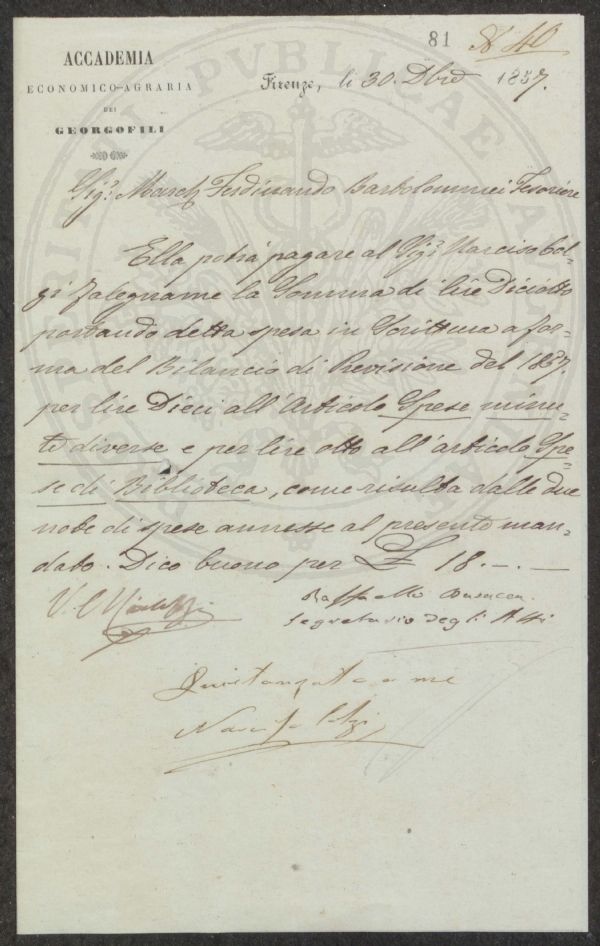 81 N 40
ACCADEMIA
ECONOMICO-AGRARIA
DEI
GEORGOFILI
Firenze, li 30. Dbre 1857.
Sigr. March. Ferdinando Bartolommei Tesoriere
Ella potrà pagare al Sigr. Narciso Col-
zi falegname la Somma di lire Diciotto
portando detta spesa in Scrittura a for-
ma del Bilancio di Previsione del 1857.
per lire Dieci all'Articolo Spese minu-
te diverse e per lire otto all'articolo Spe-
se di Biblioteca, come risulta dalle due
note di spese annesse al presente man-
dato. Dico buono per £ 18. — . —
Raffaello Busacca
Segretario degli Atti
Quietanzata a me
Narciso Colzi